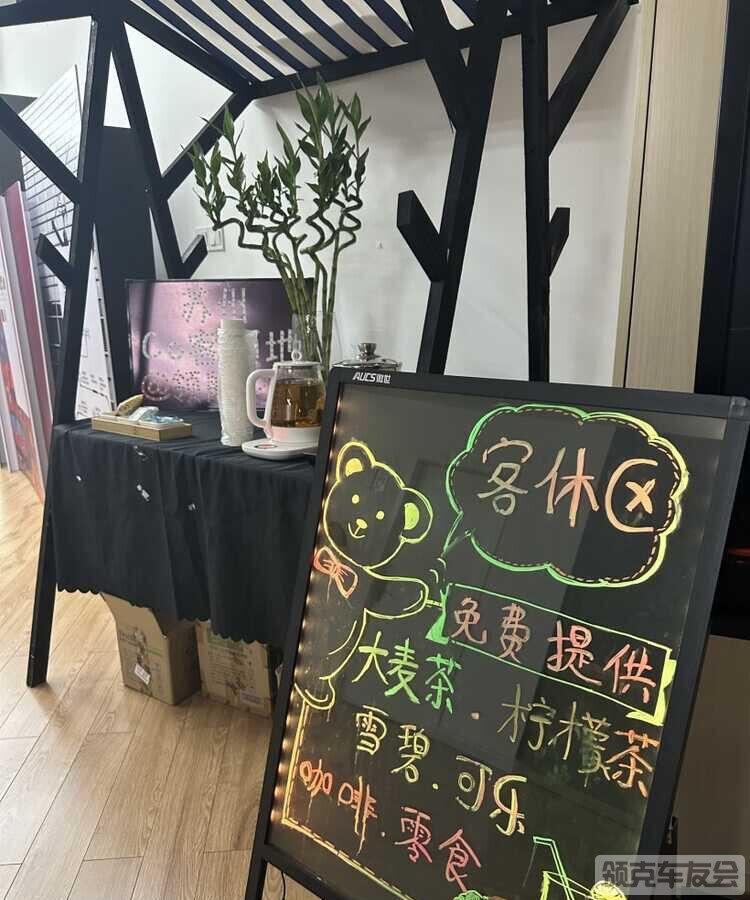 AUCS 傲世
客休区
免费提供
大麦茶.柠檬茶
雪碧.可乐
咖啡.零食
领克车友会